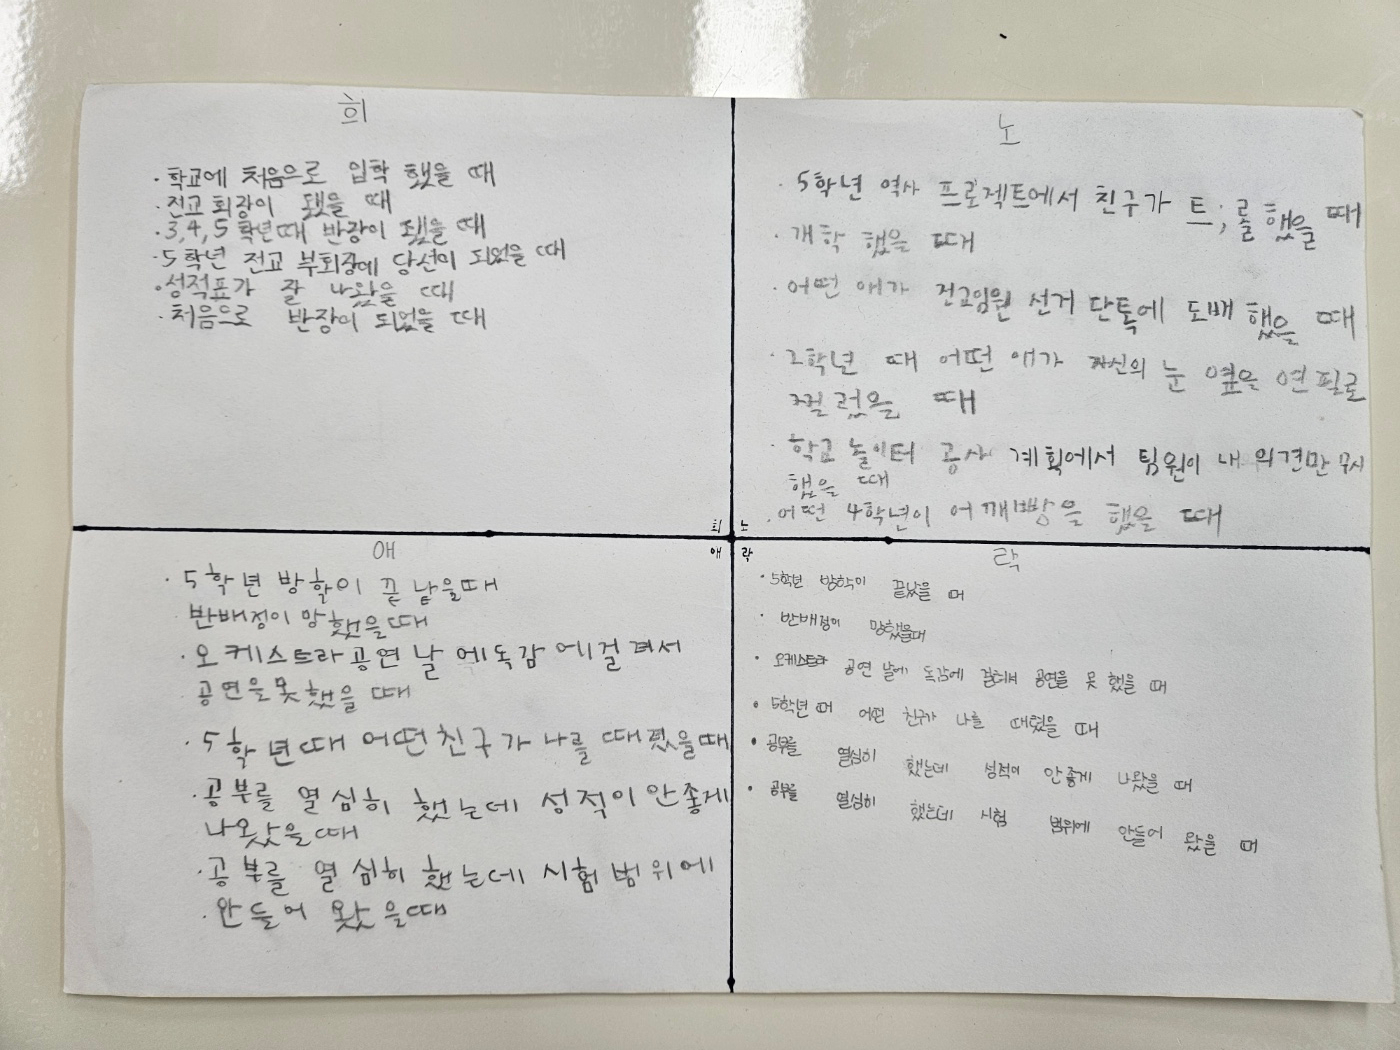 희
· 학교에 처음으로 입학 했을 때
· 전교 회장이 됐을 때
· 3,4,5학년때 반장이 됐을 때
· 5학년 전교 부회장에 당선이 되었을 때
· 성적표가 잘 나왔을 때
· 처음으로 반장이 되었을 때
노
· 5학년 역사 프로젝트에서 친구가 트;롤 했을 때
· 개학 했을 때
· 어떤 애가 전교임원 선거 단톡에 도배 했을 때
· 2학년 때 어떤 애가 자신의 눈 옆을 연필로
찔렀을 때
· 학교 놀이터 공사 계획에서 팀원이 내 의견만 무시
했을 때
· 어떤 4학년이 어깨빵을 했을 때
희 노
애 락
애
· 5학년 방학이 끝 낱을때
반배정이 망했을때
· 오케스트라 공연 날 에독감 에걸려서
공연을못했을 때
· 5학년때 어떤친구가 나를 때렸을때
· 공부를 열심히 했는데 성적이안좋게
나왔을때
· 공부를 열심히 했는데 시험범위에
· 안들어 왔을때
락
· 5학년 방학이 끝났을 때
· 반배정이 망했을때
· 오케스트라 공연 날에 독감에 걸려서 공연을 못 했을 때
· 5학년 때 어떤 친구가 나를 때렸을 때
· 공부를 열심히 했는데 성적이 안좋게 나왔을 때
· 공부를 열심히 했는데 시험 범위에 안들어 왔을 때